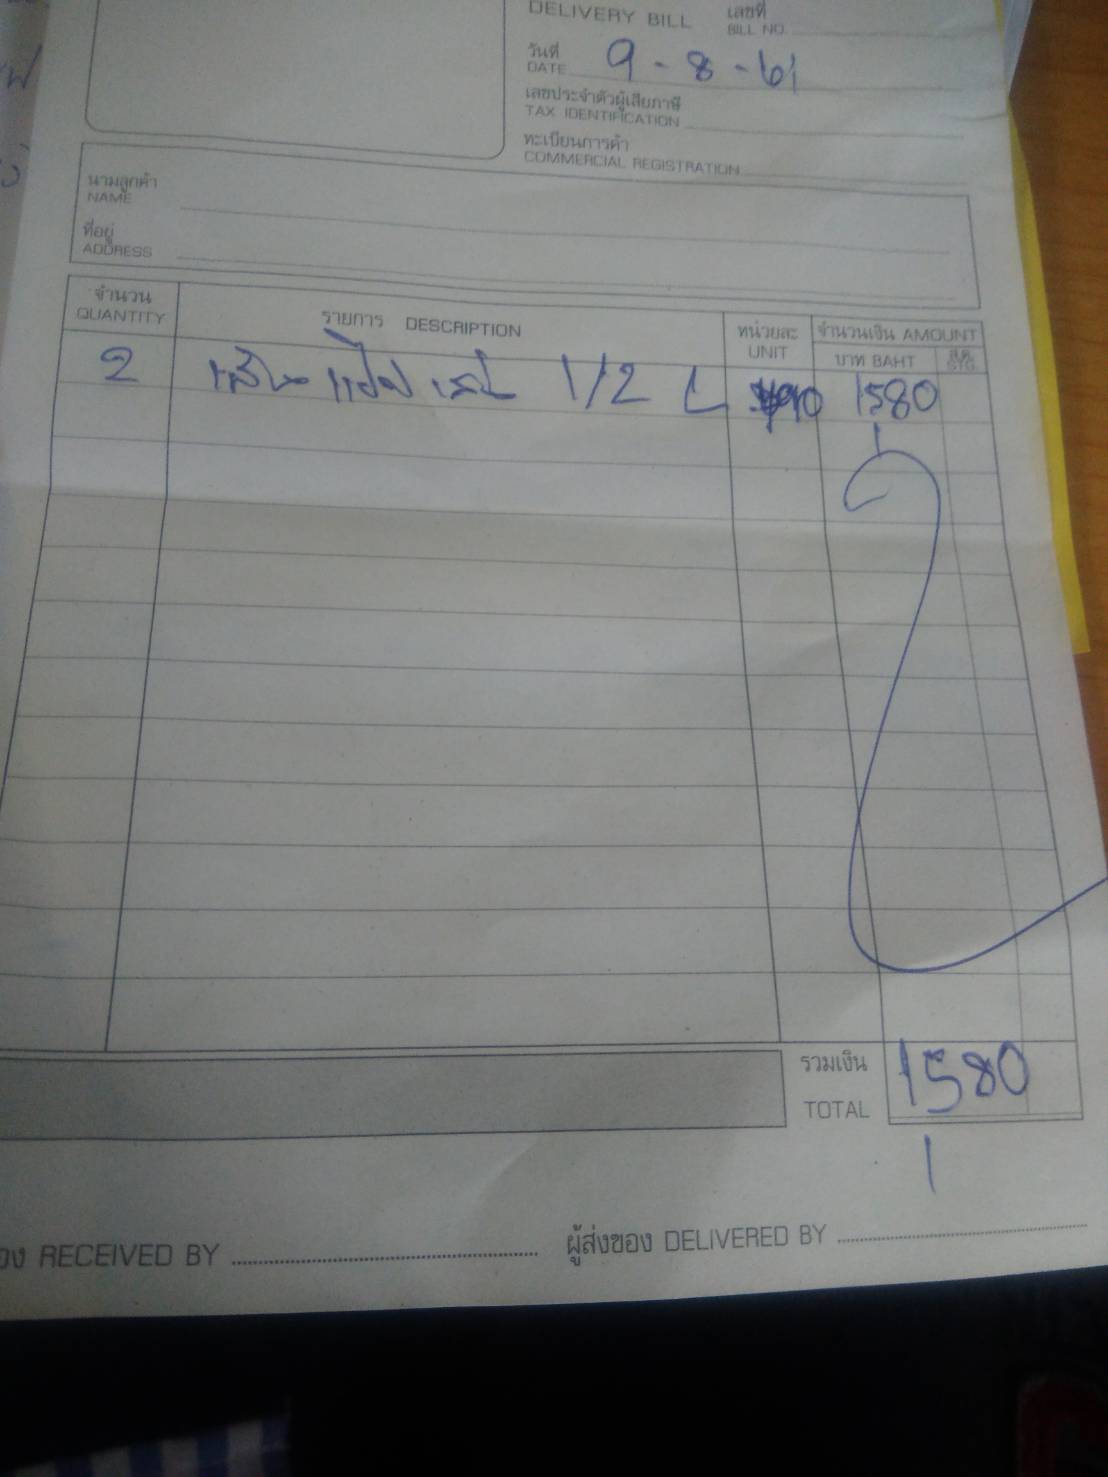 DELIVERY BILL
เลขที่
BILL NO.
วันที่
DATE 9-8-61
เลขประจำตัวผู้เสียภาษี
TAX IDENTIFICATION
ทะเบียนการค้า
COMMERCIAL REGISTRATION
นามลูกค้า
NAME
ที่อยู่
ADDRESS
จำนวน รายการ DESCRIPTION หน่วยละ จำนวนเงิน AMOUNT
QUANTITY UNIT บาท BAHT ส.ต. STG.
2 1/2 L 790 1580
รวมเงิน 1580
TOTAL
RECEIVED BY ผู้ส่งของ DELIVERED BY